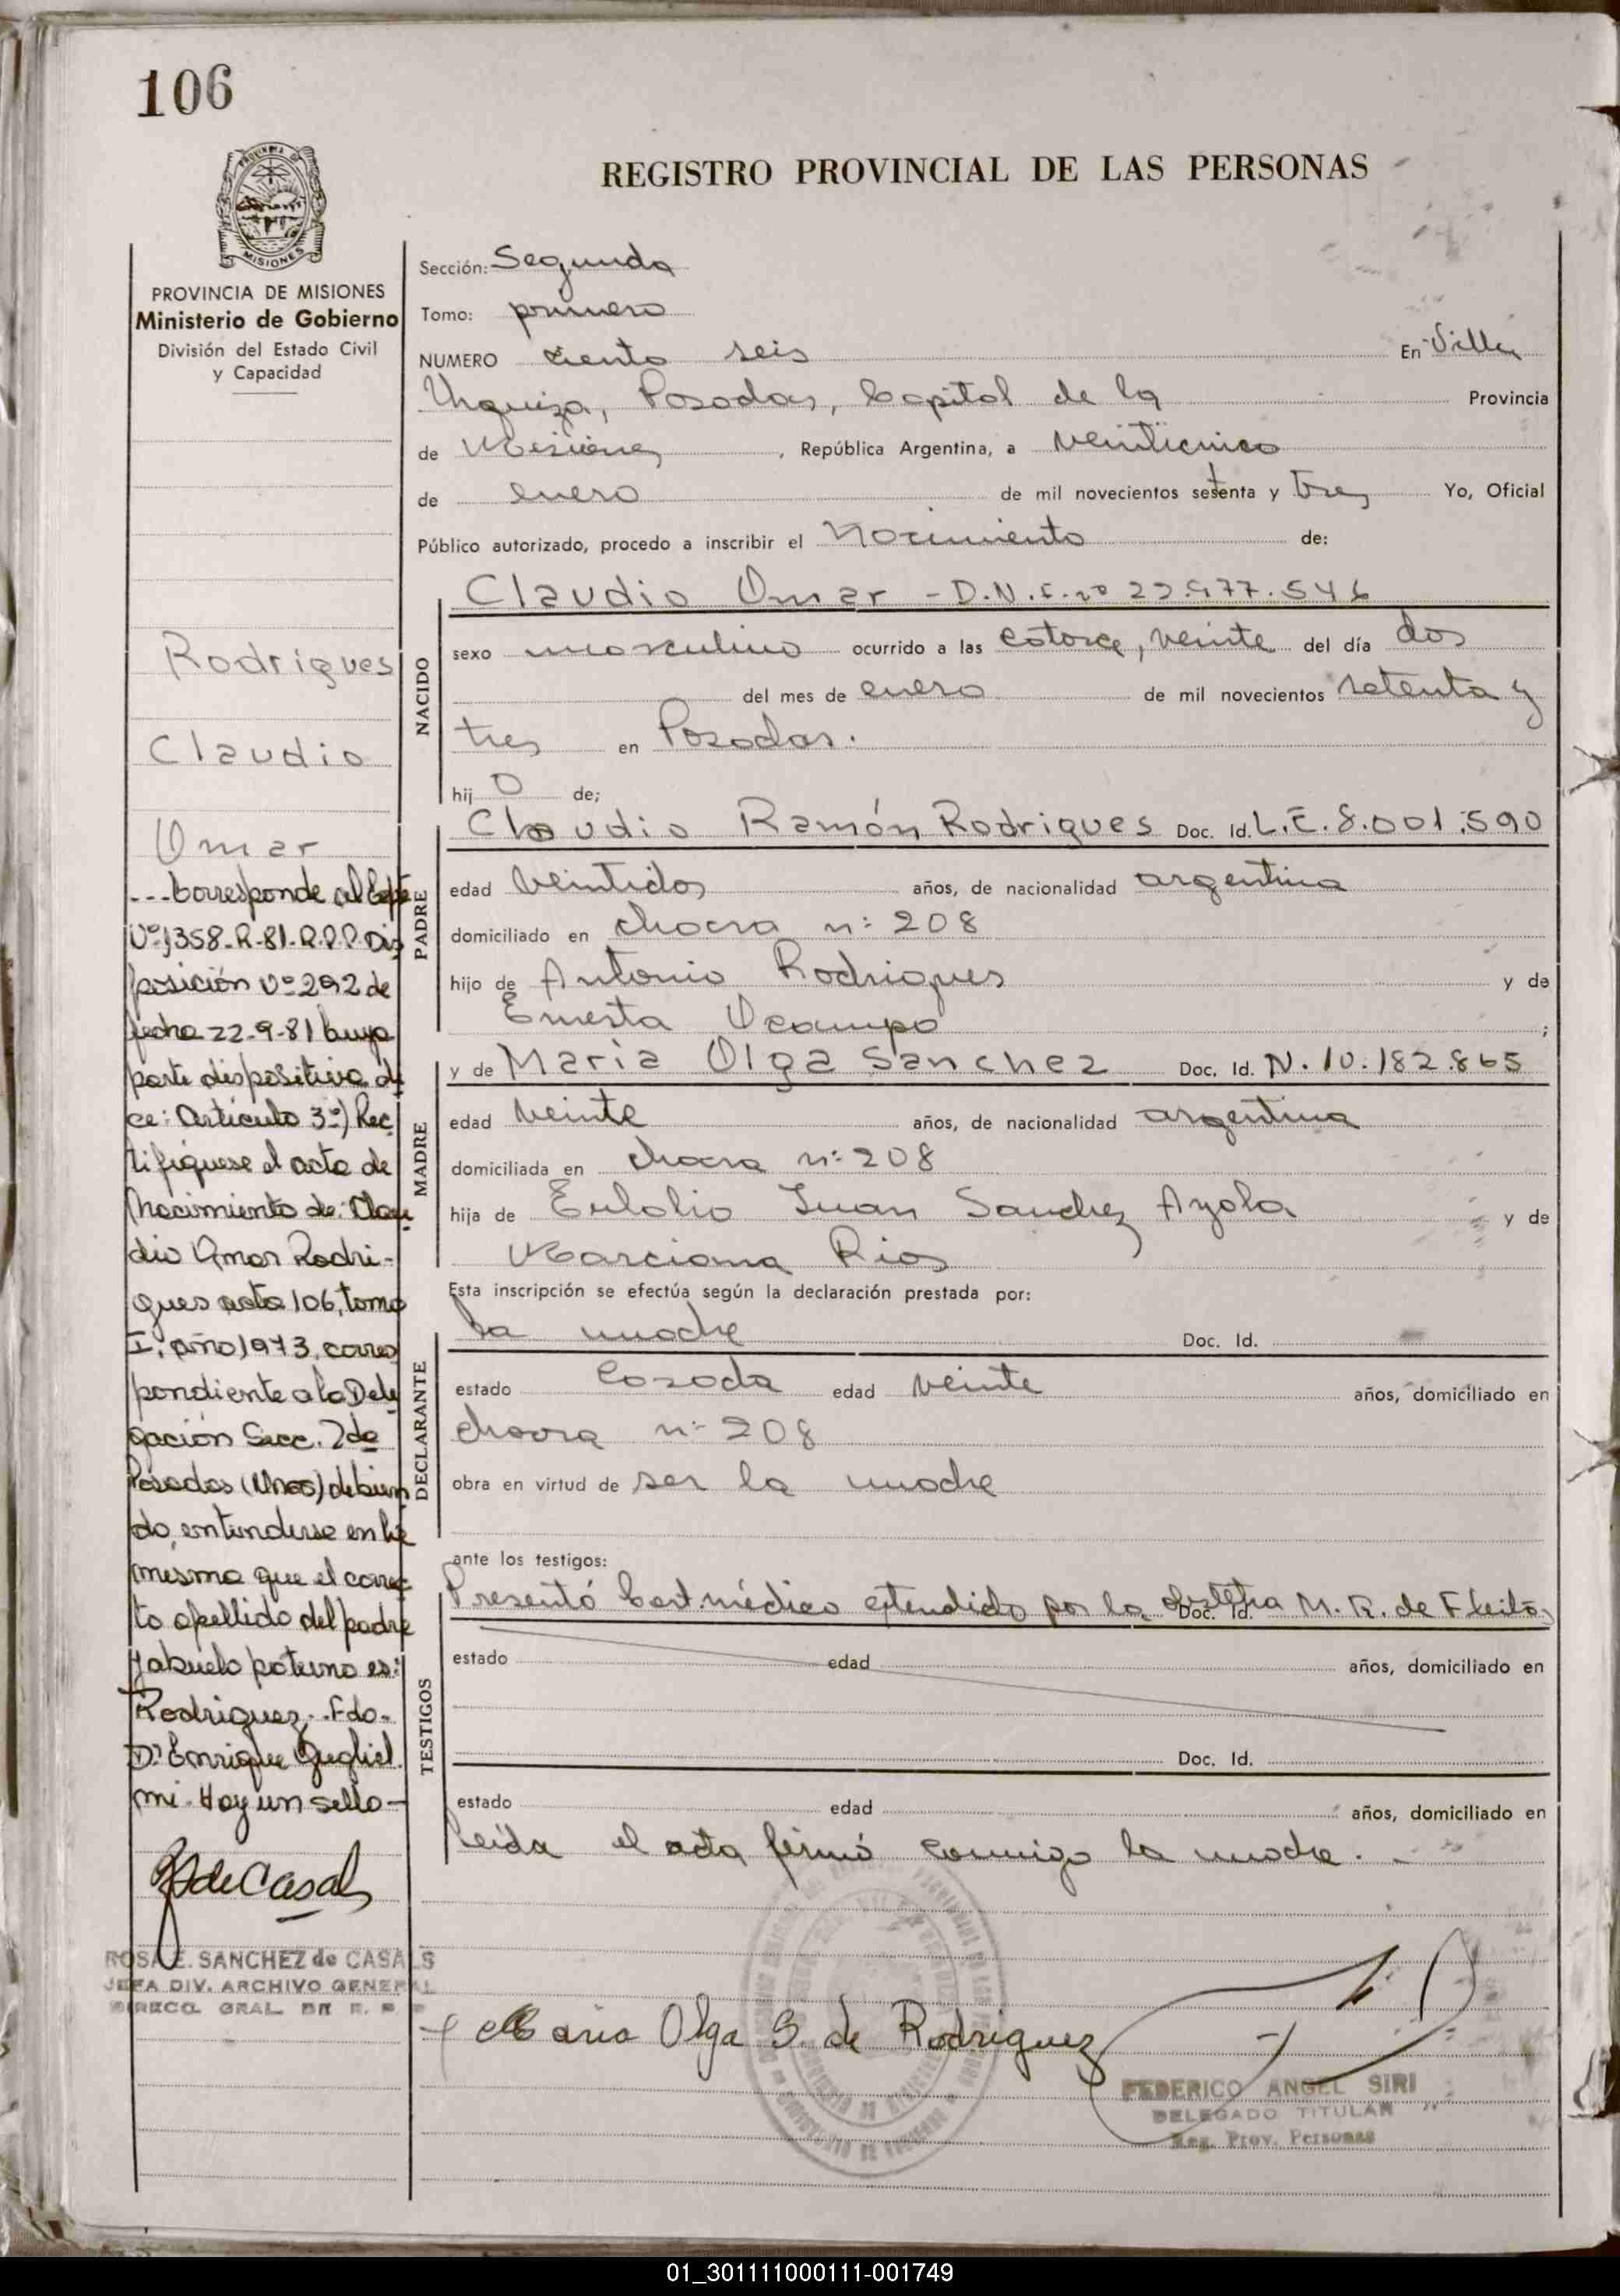 106
REGISTRO PROVINCIAL DE LAS PERSONAS
PROVINCIA DE MISIONES
Ministerio de Gobierno
División del Estado Civil
y Capacidad
Rodrigues
Claudio
Omar
---Corresponde al Expte
Nº 1358-R-81-R.P.P. Dis
posición Nº 292 de
fecha 22-9-81 cuya
parte dispositiva di
ce: Artículo 3º) Rec
tifiquese el acta de
Nacimiento de: Clau
dio Omar Rodri-
gues acta 106, tomo
I, año 1973, corres
pondiente a la Dele
gación Secc. 2da
Posadas (Mnes) debien
do entenderse en la
misma que el correc
to apellido del padre
y abuelo paterno es:
Rodriguez. Fdo.
Dr Enrique Gugliel
mi. Hay un sello-
RS de Casals
ROSA E. SANCHEZ de CASALS
JEFA DIV. ARCHIVO GENERAL
DIRECC. GRAL. DE R. P. P
Sección: Segunda
Tomo: primero
NUMERO ciento seis En Villa
Urquiza, Posadas, Capital de la Provincia
de Misiones, República Argentina, a veinticinco
de enero de mil novecientos setenta y tres Yo, Oficial
Público autorizado, procedo a inscribir el Nacimiento de:
NACIDO
Claudio Omar - D.N.I. nº 22.977.546
sexo masculino ocurrido a las catorce, veinte del día dos
del mes de enero de mil novecientos setenta y
tres en Posadas.
hijo de;
PADRE
Claudio Ramón Rodrigues Doc. Id. L.E. 8.001.590
edad veintidos años, de nacionalidad argentina
domiciliado en chacra n: 208
hijo de Antonio Rodrigues y de
Ernesta Ocampo ;
MADRE
y de María Olga Sanchez Doc. Id. N. 10.182.865
edad veinte años, de nacionalidad argentina
domiciliada en chacra n: 208
hija de Eulalio Juan Sanchez Ayala y de
Marciana Rios
Esta inscripción se efectúa según la declaración prestada por:
DECLARANTE
la madre Doc. Id.
estado casada edad veinte años, domiciliado en
chacra n: 208
obra en virtud de ser la madre
ante los testigos:
TESTIGOS
Presentó Cert. médico extendido por la obstetra Doc. Id. M. R. de Fleitas
estado edad años, domiciliado en
Doc. Id.
estado edad años, domiciliado en
leída el acta firmó conmigo la madre. -
Maria Olga S. de Rodriguez
FEDERICO ANGEL SIRI
DELEGADO TITULAR
Reg. Prov. Personas
01_301111000111-001749